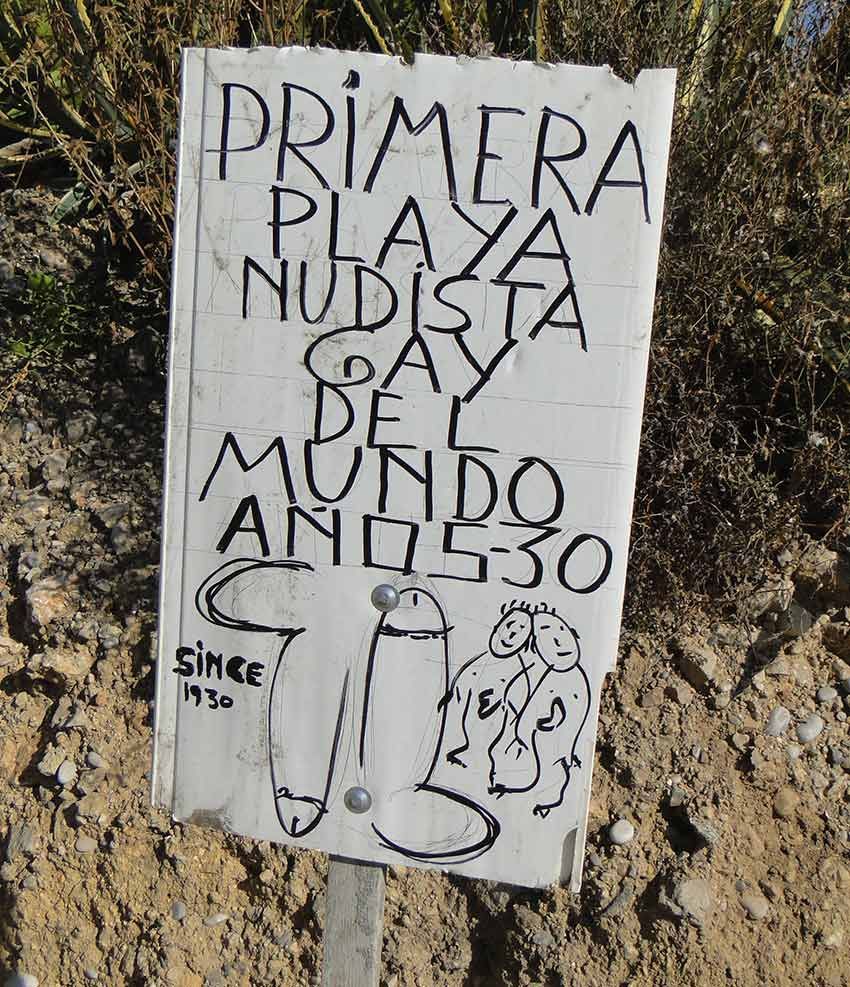 PRIMERA
PLAYA
NUDISTA
GAY
DEL
MUNDO
AÑO5-30
SINCE
1930